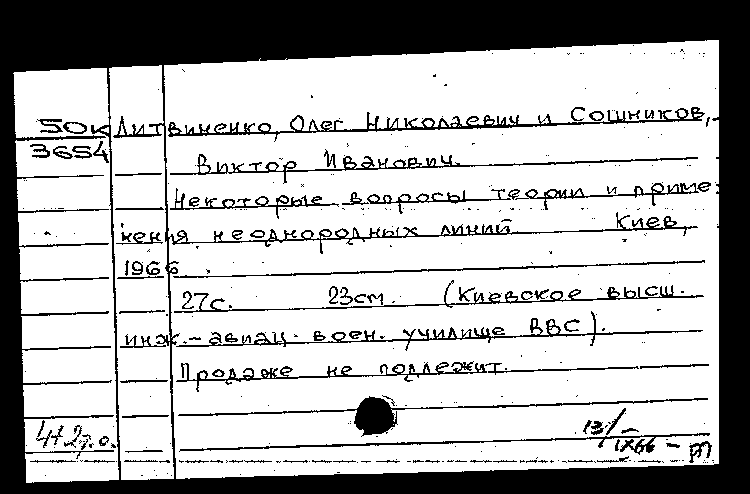 50к Литвиненко, Олег Николаевич и Сошников,
3654
Виктор Иванович.
Некоторые вопросы теории и приме-
нения неоднородных линий Киев,
1966
27с. 23см. (Киевское высш.
инж.-авиац. воен. училище ВВС).
Продаже не подлежит.
13/IX66